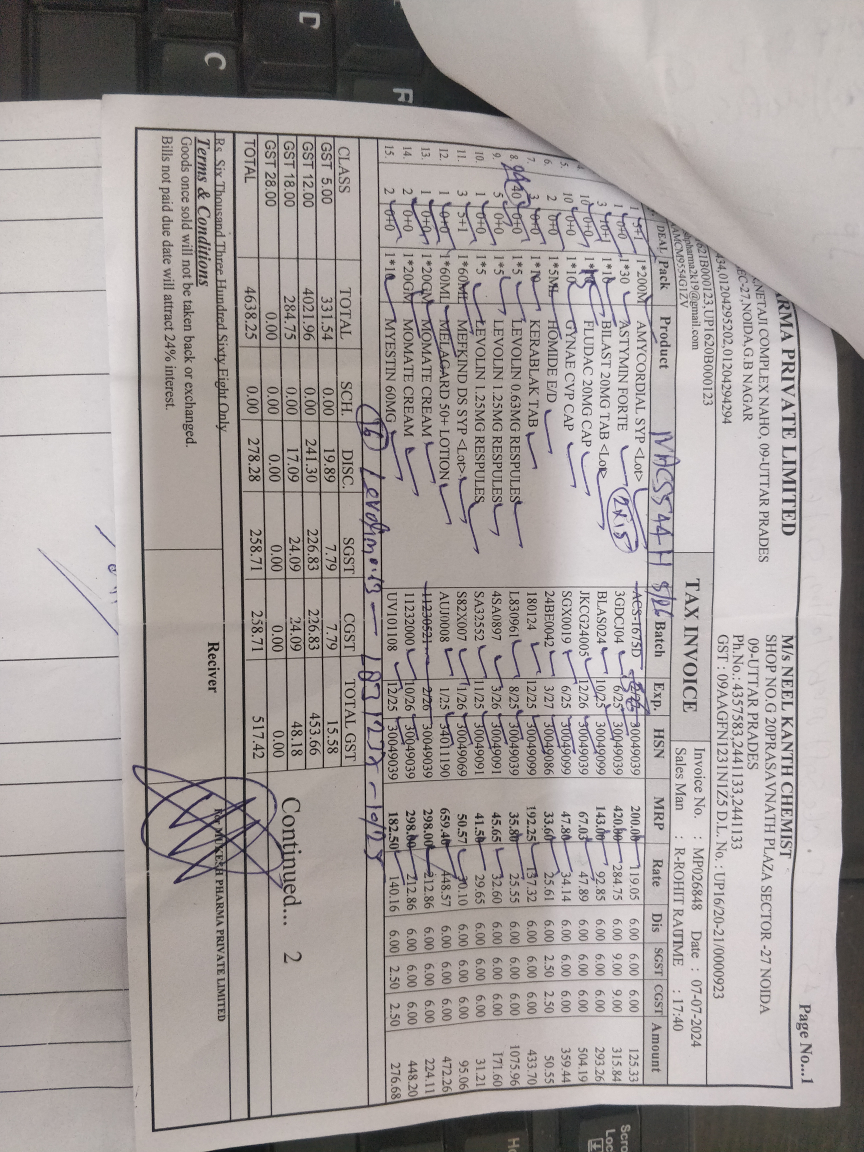 Page No...1
ARMA PRIVATE LIMITED
NETAJI COMPLEX NAHO, 09-UTTAR PRADES
EC-27,NOIDA,G.B NAGAR
34,01204295202,01204294294
621B000123,UP1620B000123
pharma2k19@gmail.com
AMCM9554G1ZV
M/s NEEL KANTH CHEMIST
SHOP NO.G 20PRASAVNATH PLAZA SECTOR -27 NOIDA
09-UTTAR PRADES
Ph.No.: 4357583,2441133,2441133
GST : 09AAGFN1231N1Z5 D.L. No. : UP16/20-21/0000923
TAX INVOICE
Invoice No. : MP026848 Date : 07-07-2024
Sales Man : R-ROHIT RAUTIME : 17:40
DEAL Pack Product Batch Exp. HSN MRP Rate Dis SGST CGST Amount
1 5+1 1*200M AMYCORDIAL SYP <Lot> ACS-1675D 30049039 200.00 119.05 6.00 6.00 6.00 125.33
1 0+0 1*30 ASTYMIN FORTE 3GDCJ04 6/25 30049039 420.00 284.75 6.00 9.00 9.00 315.84
3 10+1 1*10 BILAST 20MG TAB <Lot> BLAS024 10/25 30049099 143.00 92.85 6.00 6.00 6.00 293.26
10 0+0 FLUDAC 20MG CAP JKCG24005 12/26 30049039 67.03 47.89 6.00 6.00 6.00 504.19
5. 10 0+0 1*10 GYNAE CVP CAP SGX0019 6/25 30049099 47.80 34.14 6.00 6.00 6.00 359.44
6. 2 0+0 1*5ML HOMIDE E/D 24BE0042 3/27 30049086 33.60 25.61 6.00 2.50 2.50 50.55
7. 3 0+0 1*10 KERABLAK TAB 180124 12/25 30049099 192.25 137.32 6.00 6.00 6.00 433.70
8. 40 0+0 1*5 LEVOLIN 0.63MG RESPULES L830961 8/25 30049039 35.80 25.55 6.00 6.00 6.00 1075.96
9. 5 0+0 1*5 LEVOLIN 1.25MG RESPULES 4SA0897 3/26 30049091 45.65 32.60 6.00 6.00 6.00 171.60
10. 1 0+0 1*5 LEVOLIN 1.25MG RESPULES SA32552 11/25 30049091 41.50 29.65 6.00 6.00 6.00 31.21
11. 3 5+1 1*60ML MEEKIND DS SYP <Lot> S82X007 1/26 30049069 50.57 30.10 6.00 6.00 6.00 95.06
12. 1 0+0 1*60ML MELAGARD 50+ LOTION AUJ0008 1/25 34011190 659.40 448.57 6.00 6.00 6.00 472.26
13. 1 0+0 1*20GM MOMATE CREAM 11230521 2/26 30049039 298.00 212.86 6.00 6.00 6.00 224.11
14. 2 0+0 1*20GM MOMATE CREAM 11232000 10/26 30049039 298.00 212.86 6.00 6.00 6.00 448.20
15. 2 0+0 1*10 MYESTIN 60MG UV101108 12/25 30049039 182.50 140.16 6.00 2.50 2.50 276.68
CLASS TOTAL SCH. DISC. SGST CGST TOTAL GST
GST 5.00 331.54 0.00 19.89 7.79 7.79 15.58
GST 12.00 4021.96 0.00 241.30 226.83 226.83 453.66
GST 18.00 284.75 0.00 17.09 24.09 24.09 48.18
GST 28.00 0.00 0.00 0.00 0.00 0.00 0.00
TOTAL 4638.25 0.00 278.28 258.71 258.71 517.42
Continued... 2
Rs. Six Thousand Three Hundred Sixty Eight Only
Terms & Conditions
Goods once sold will not be taken back or exchanged.
Bills not paid due date will attract 24% interest.
Reciver
MUKESH PHARMA PRIVATE LIMITED